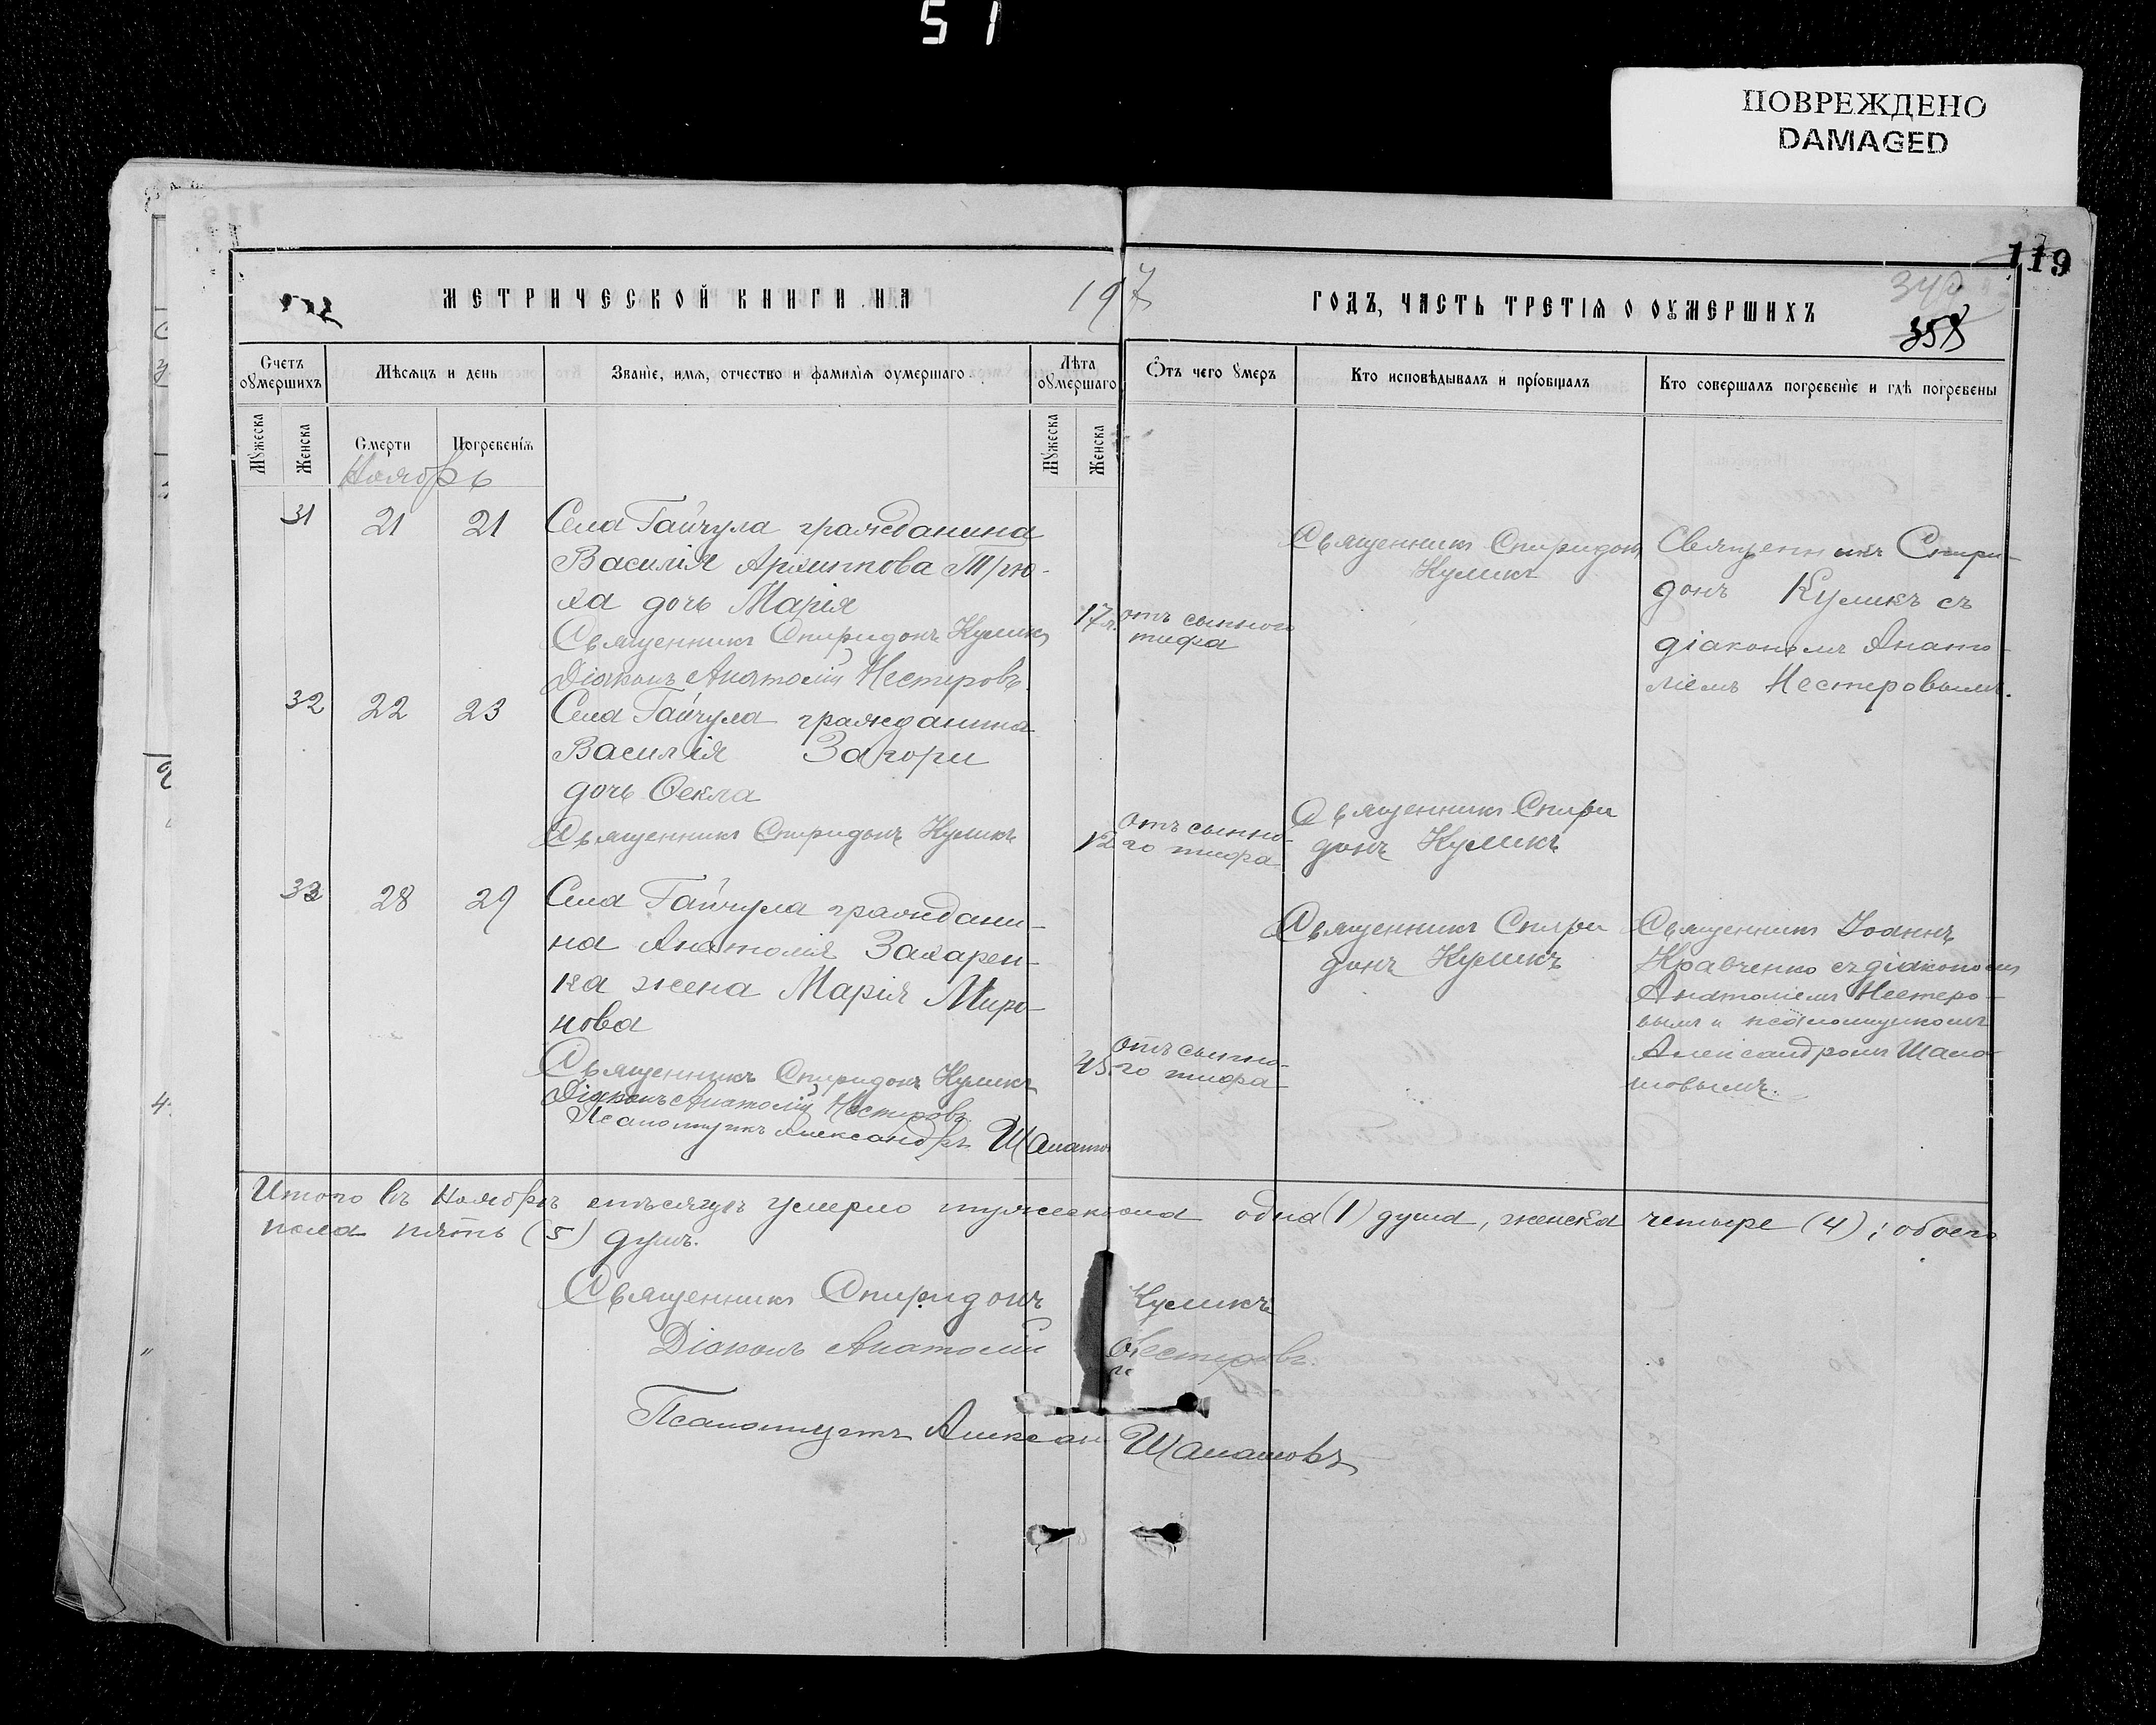 51
ПОВРЕЖДЕНО
DAMAGED
119
349
358
МЕТРИЧЕСКОЙ КНИГИ НА 1917 ГОДЪ, ЧАСТЬ ТРЕТІЯ О ОУМЕРШИХЪ
Счетъ оумершихъ
Мѣсяцъ и день
Званіе, имя, отчество и фамилія оумершаго.
Лѣта оумершаго
Отъ чего умеръ
Кто исповѣдывалъ и пріобщалъ
Кто совершалъ погребеніе и гдѣ погребены
Мужеска
Женска
Смерти
Погребенія
Мужеска
Женска
Ноябрь
31 21 21
Села Гайчула гражданина
Василія Архиппова
ха дочь Марія
Священникъ Спиридонъ Куликъ
Діаконъ Анатолій Нестеровъ.
17 л.
отъ сыпного
тифа
Священникъ Спиридонъ
Куликъ
Священникъ Спири-
донъ Куликъ съ
діакономъ Анато-
ліемъ Нестеровымъ.
32 22 23
Села Гайчула гражданина
Василія Загори
дочь Ѳекла
Священникъ Спиридонъ Куликъ
12
отъ сыпно-
го тифа
Священникъ Спири
донъ Куликъ
33 28 29
Села Гайчула граждани-
на Анатолія Захарен-
ка жена Марія Миро-
нова
Священникъ Спиридонъ Куликъ
Діаконъ Анатолій Нестеровъ
Псаломщикъ Александръ
45
отъ сыпно-
го тифа
Священникъ Спири
донъ Куликъ
Священникъ Іоаннъ
Кравченко съ діакономъ
Анатоліемъ Нестеро-
вымъ и псаломщикомъ
Александромъ Шала-
шовымъ.
Итого въ Ноябрѣ мѣсяцѣ умерло мужеска одна (1) душа, женска четыре (4); обоего
пола пять (5) душъ.
Священникъ Спиридонъ Куликъ
Діаконъ Анатолій Нестеровъ.
Псаломщикъ Алексан Шалашовъ